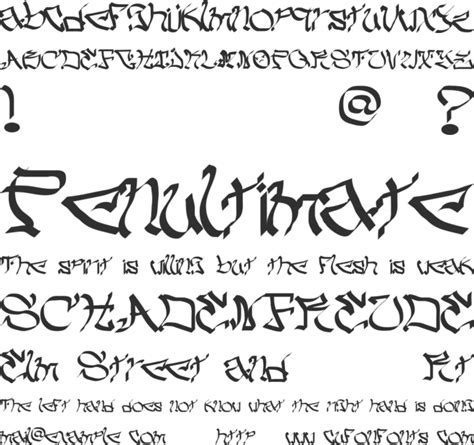 abcdefghijklmnopqrstuvwxyz
ABCDEFGHIJKLMNOPQRSTUVWXYZ
! @ ?
Penultimate
The spirit is willing but the flesh is weak
SCHADENFREUDE
Elm Street and Rt
The left hand does not know what the right hand
mail@example com http www cufonfonts com